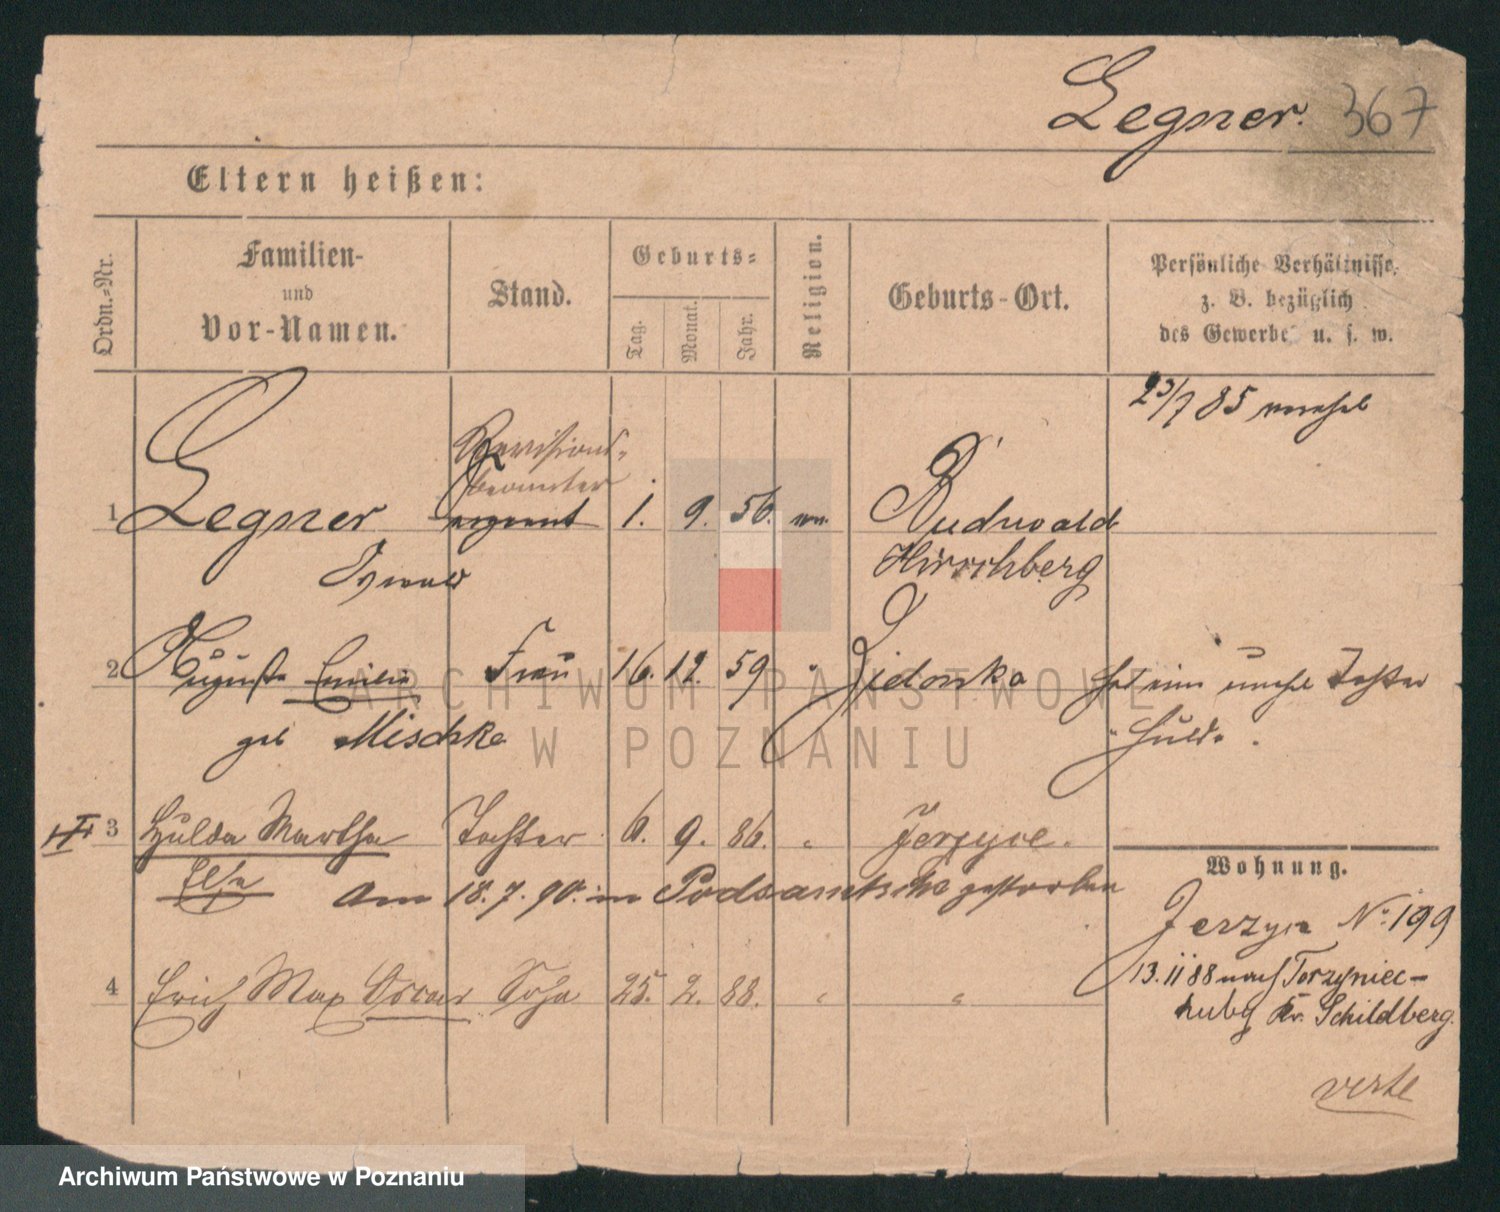 Legner. 367
Eltern heißen:
Ordn.-Nr.
Familien-
und
Vor-Namen.
Stand.
Geburts-
Tag.
Monat.
Jahr.
Religion.
Geburts-Ort.
Persönliche Verhältnisse,
z. B. bezüglich
des Gewerbes u. s. w.
23/7 85 verehel
Revisions-
beamter
1 Legner 1. 9. 56. ev. Buchwald
Hirschberg
2 Auguste Emilie Frau 16. 12. 59 " Zidonka hat eine unehel Tochter
geb Mischke "Hulda.
3 Hulda Martha Tochter 6. 9. 86. " Jerzyce.
Else am 18.7.90. in gestorben
Wohnung.
Jerzyce No 199
4 Erich Max Oscar Sohn 25. 2. 88. " "
13. 11 88 nach Torzyniec-
huby Kr. Schildberg.
verte
ARCHIWUM PAŃSTWOWE
W POZNANIU
Archiwum Państwowe w Poznaniu